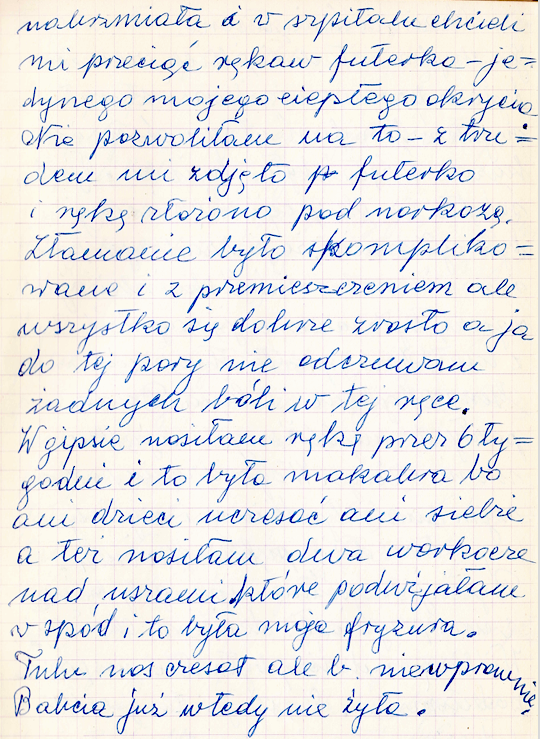 nabrzmiała i w szpitalu chcieli
mi przeciąć rękaw futerka – je=
dynego mojego ciepłego okrycia
Nie pozwoliłam na to – z tru=
dem mi zdjęto futerko
i rękę złożono pod narkozą.
Złamanie było skompliko=
wane i z przemieszczeniem ale
wszystko się dobrze zrosło a ja
do tej pory nie odczuwam
żadnych bóli w tej ręce.
W gipsie nosiłam rękę przez 6 ty=
godni i to była makabra bo
ani dzieci uczesać ani siebie
a też nosiłam dwa warkocze
nad uszami, które podwijałam
w spód i to była moja fryzura.
Tulu nas czesał ale b. niewprawnie.
Babcia już wtedy nie żyła.